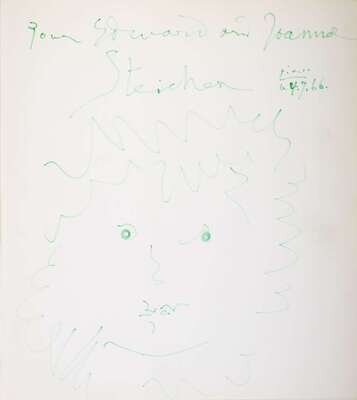 Pour Edward et Joanna
Steichen
Picasso
le 4.7.66.